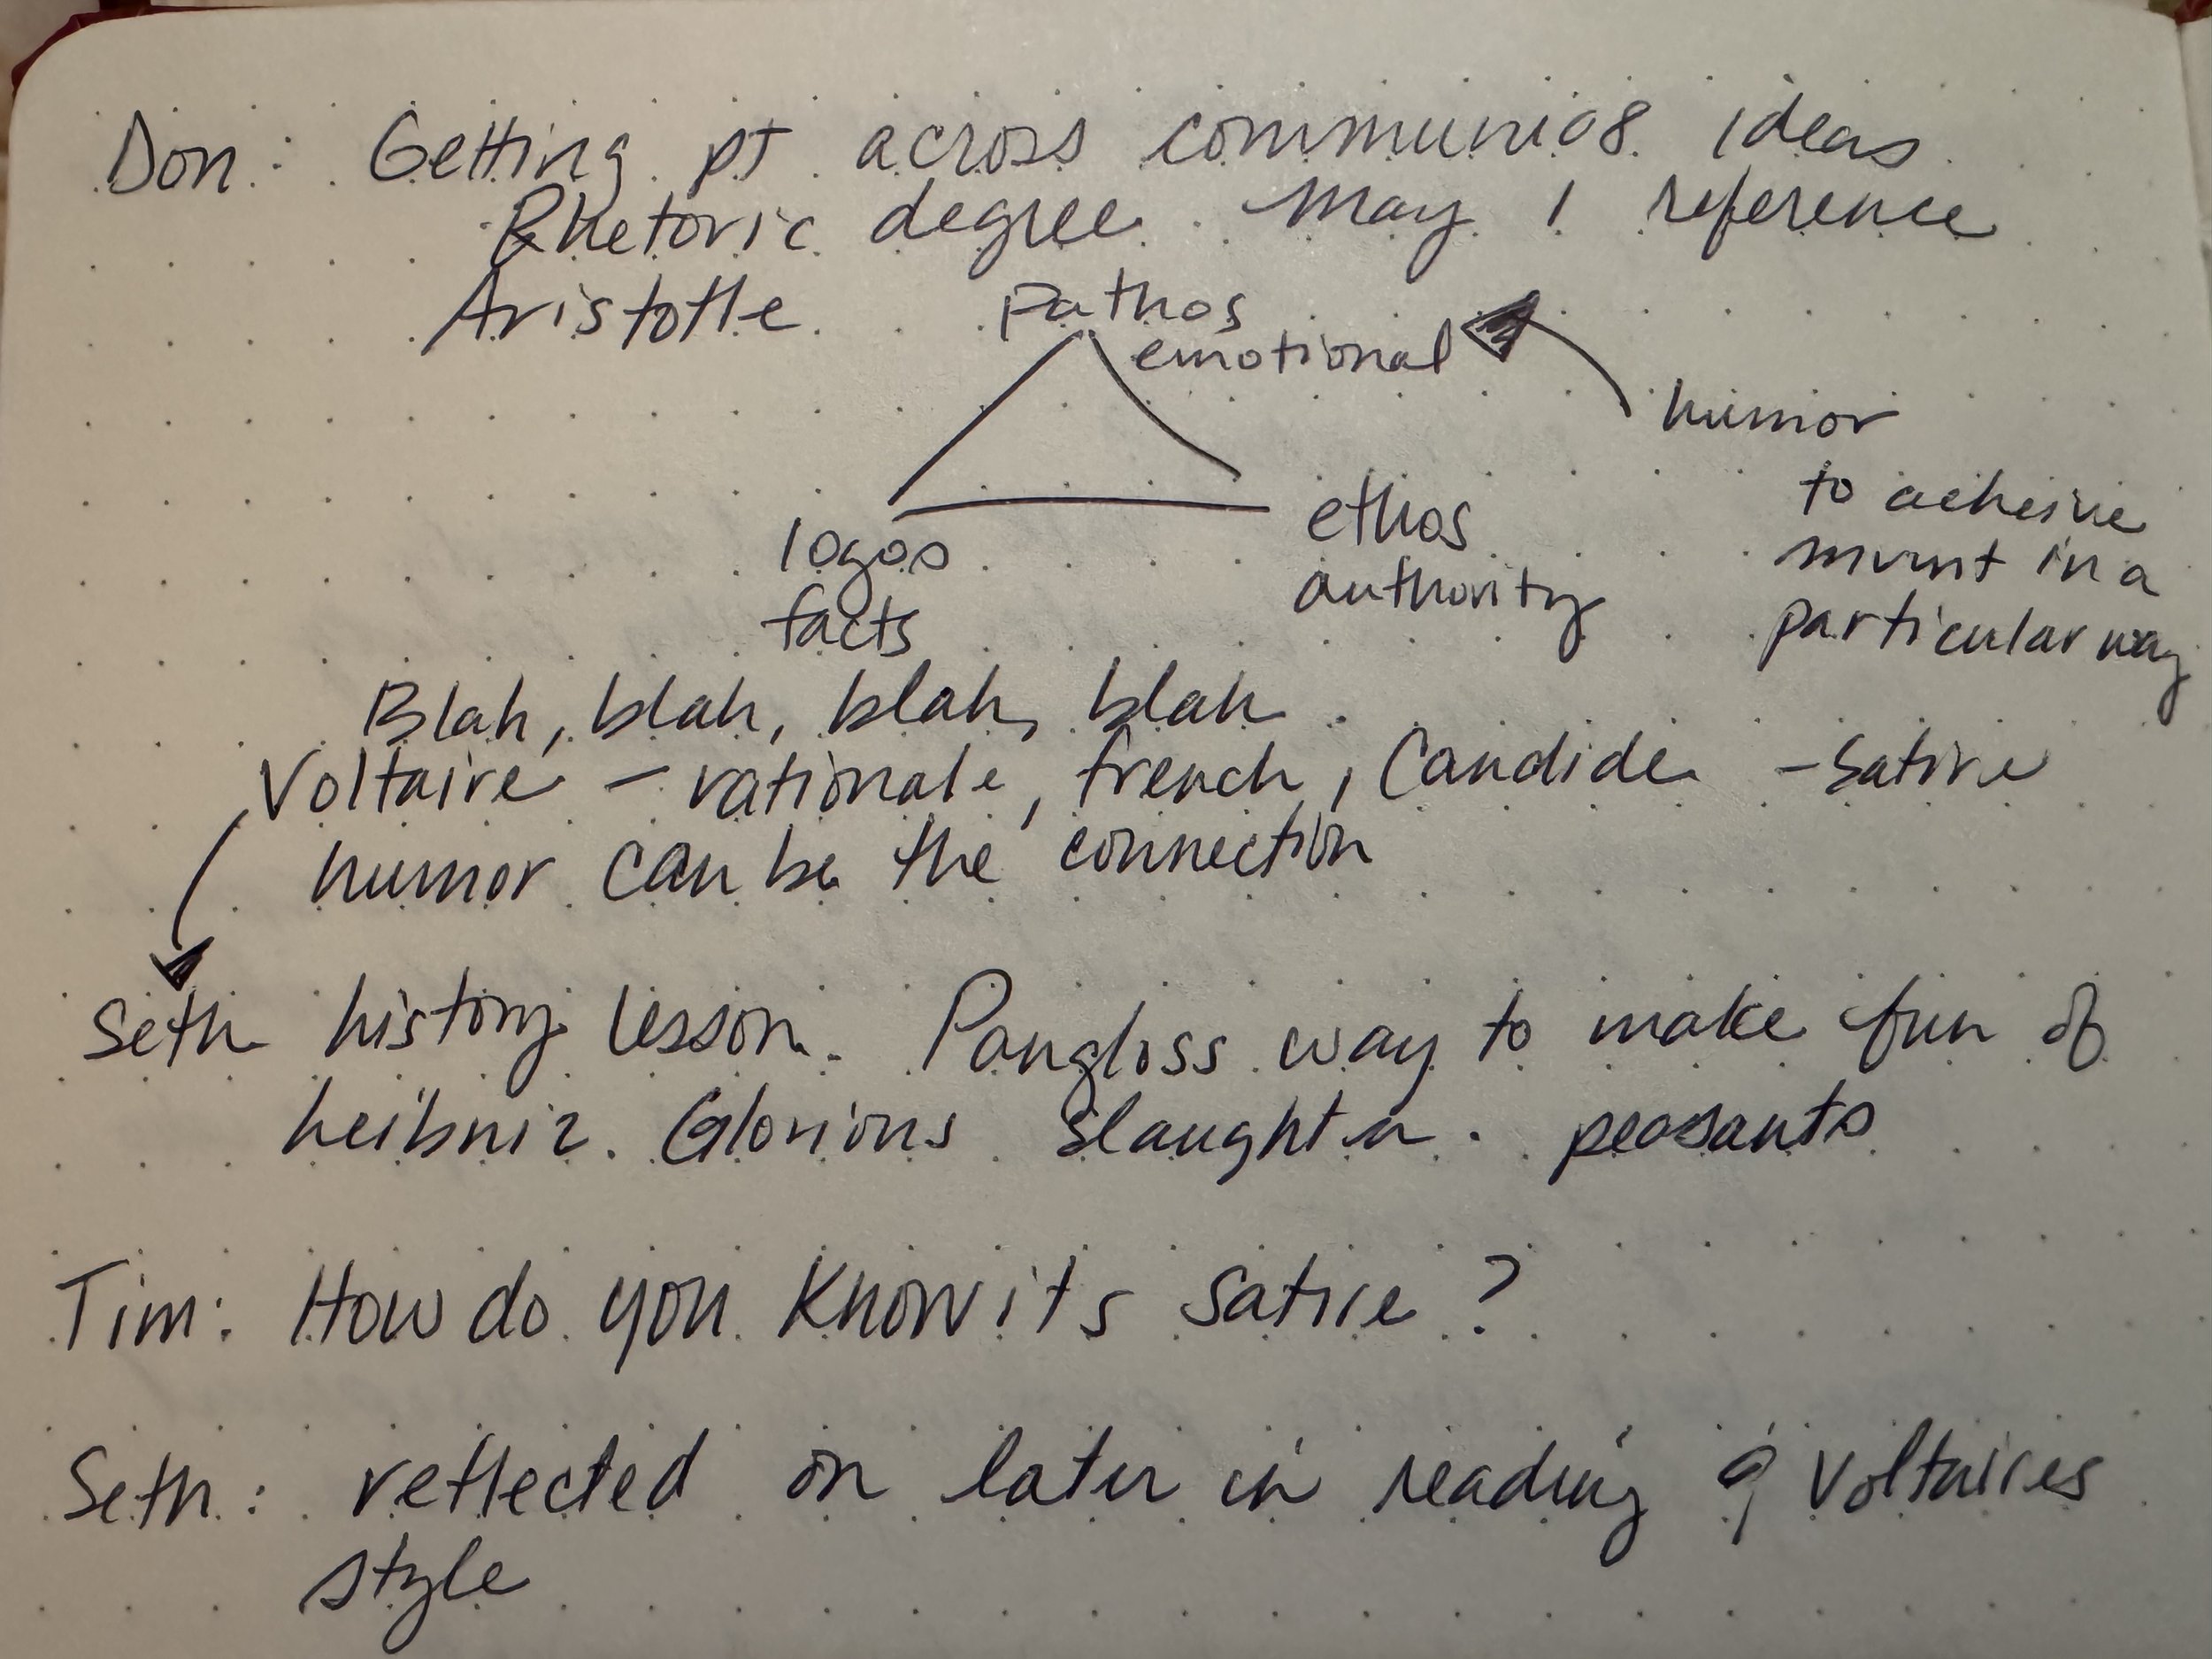 Don: Getting pt across ideas
Rhetoric degree. May I reference
Aristotle
Pathos
emotional
humor
to acheive
mvmt in a
particular way
logos
facts
ethos
authority
Blah, blah, blah, blah.
Voltaire - rationale, french, Candide - satire
humor can be the connection
Seth history lesson. Pangloss way to make fun of
Leibniz. Glorious Slaughter. peasants
Tim: How do you know its satire?
Seth: reflected on later in reading of Voltaires
style